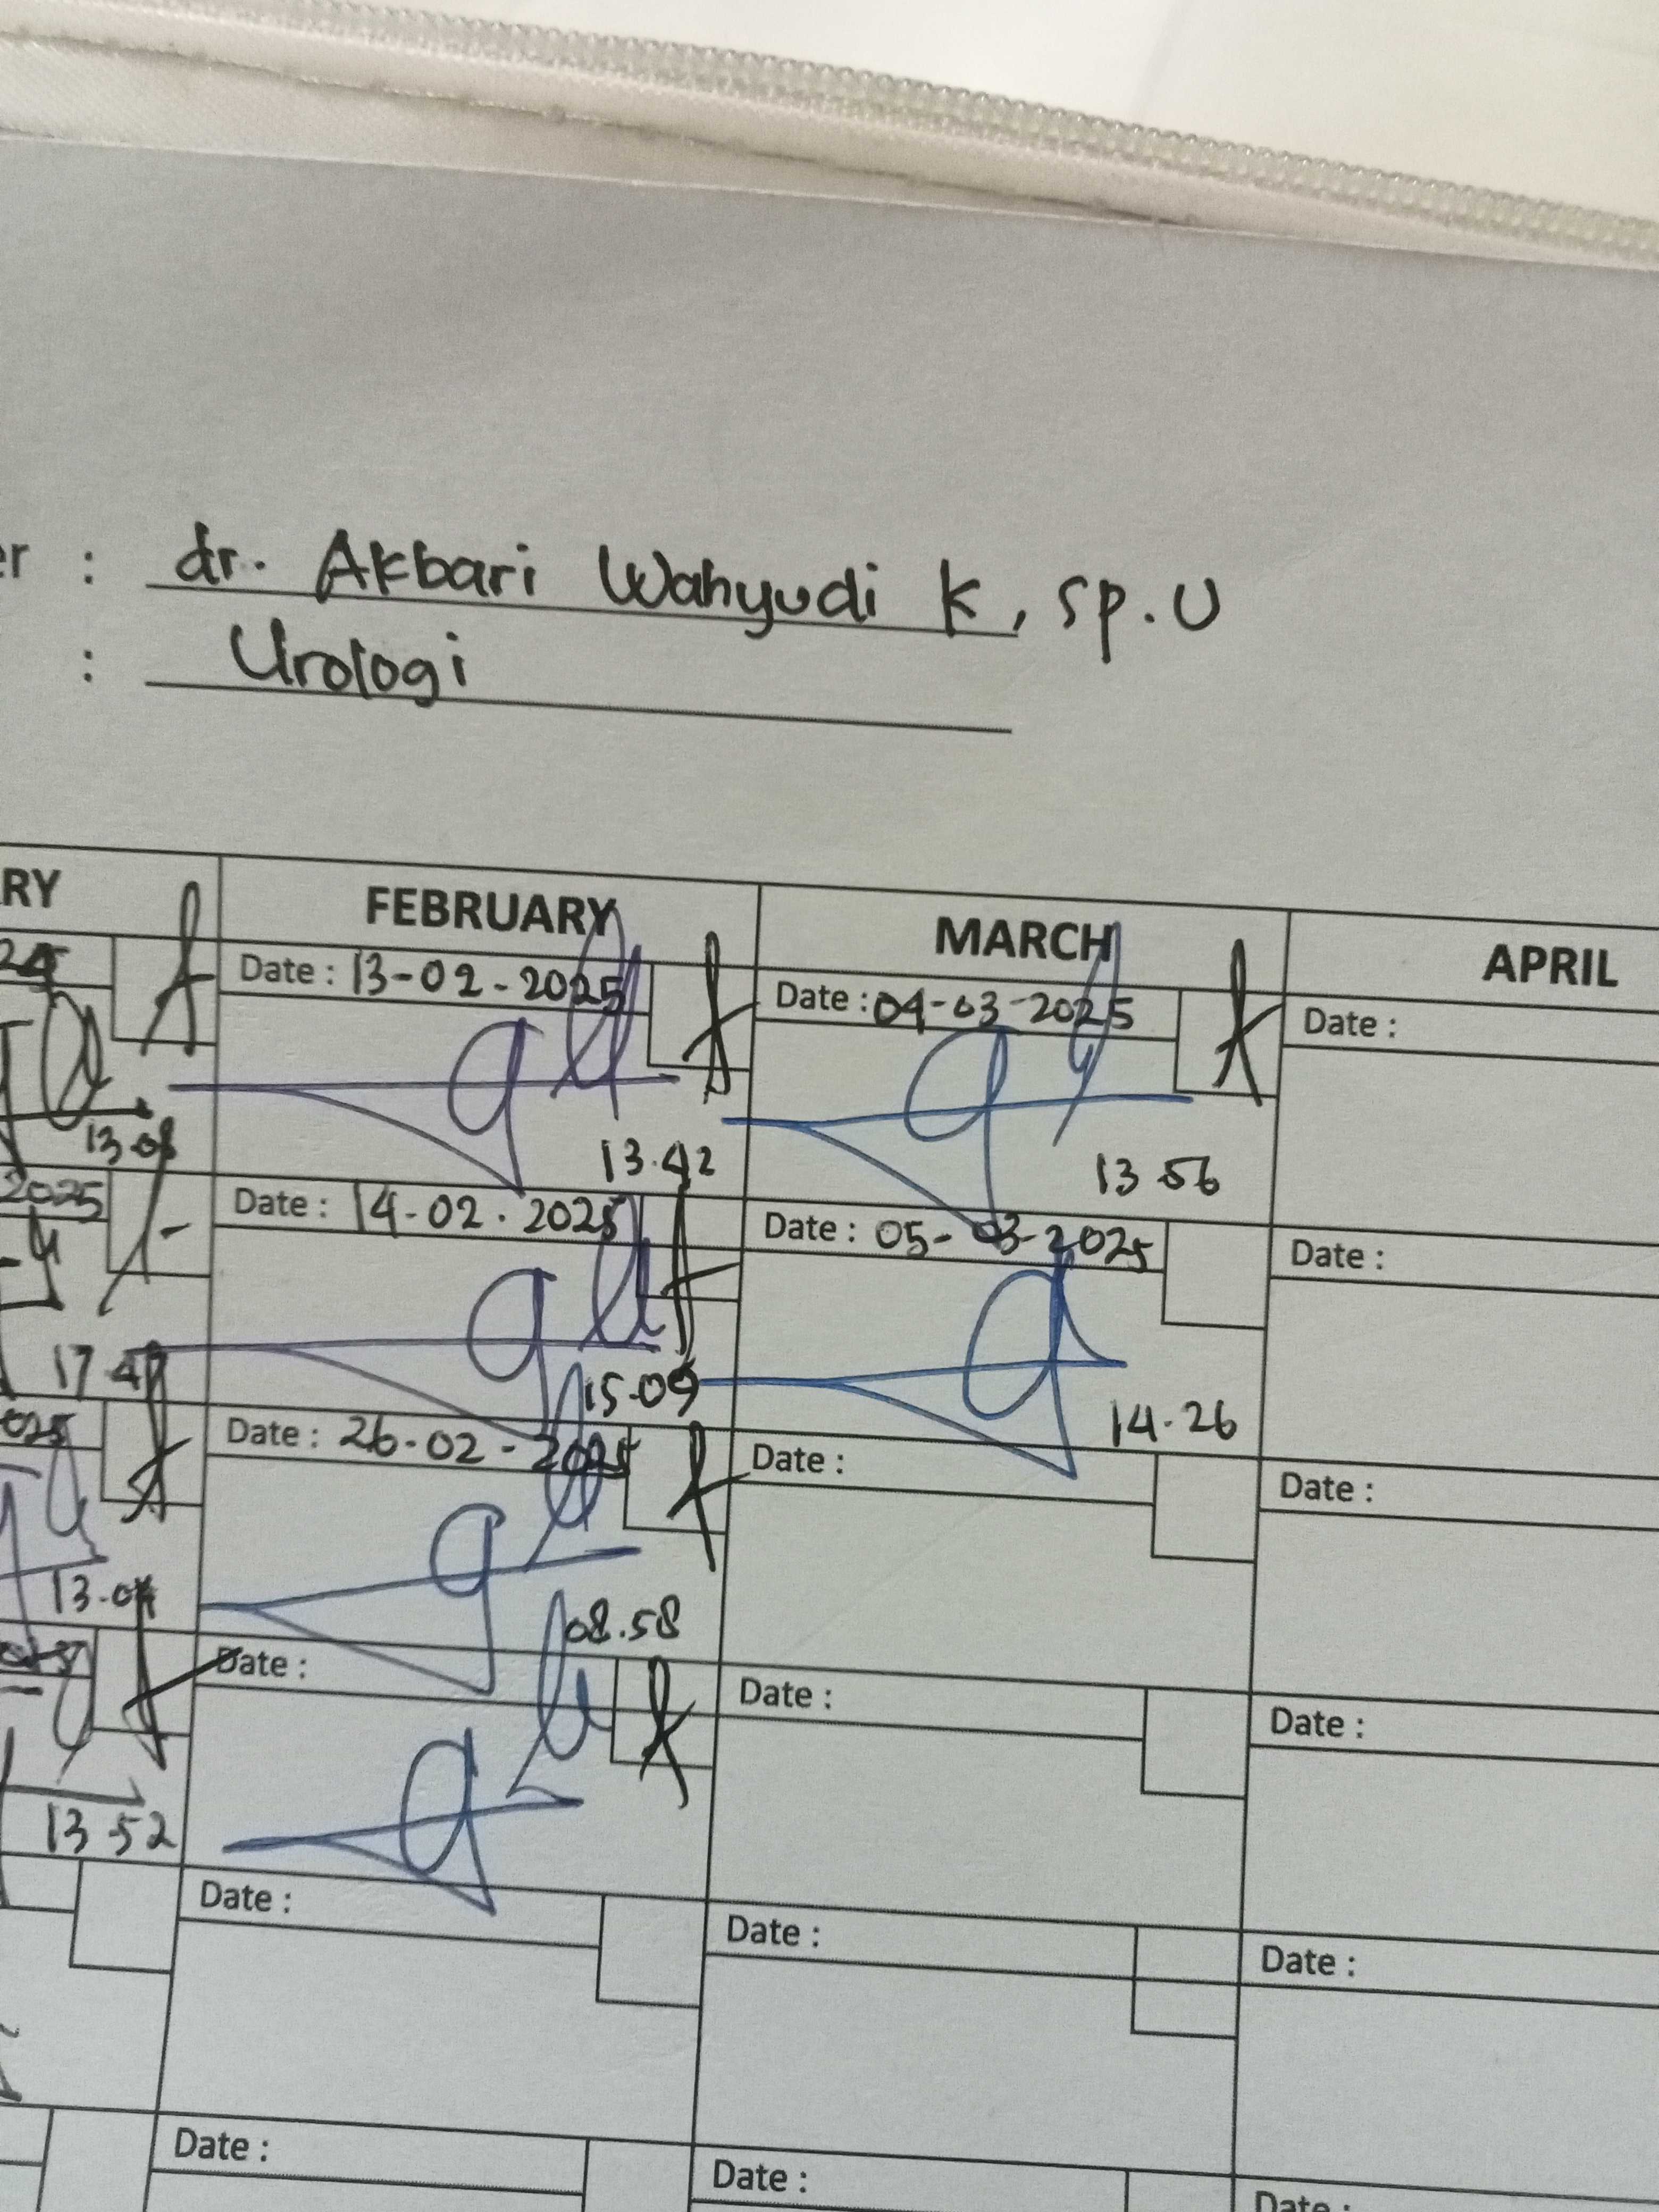 er : dr. Akbari Wahyudi K, sp.U
: Urologi
RY FEBRUARY MARCH APRIL
Date : 13-02-2025 Date : 04-03-2025 Date :
13.42 13 56
2025 Date : 14-02.2025 Date : 05-03-2025 Date :
17 47 15.09 14.26
Date : 26-02-2025 Date : Date :
08.58
Date : Date : Date :
13 52
Date : Date : Date :
Date : Date : Date :